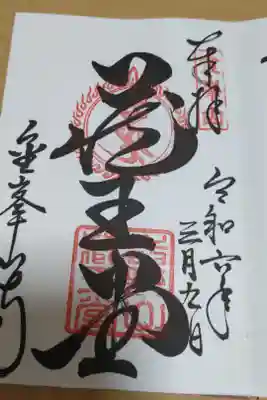 奉拝
令和六年
三月九日
蔵王堂
金峯山寺